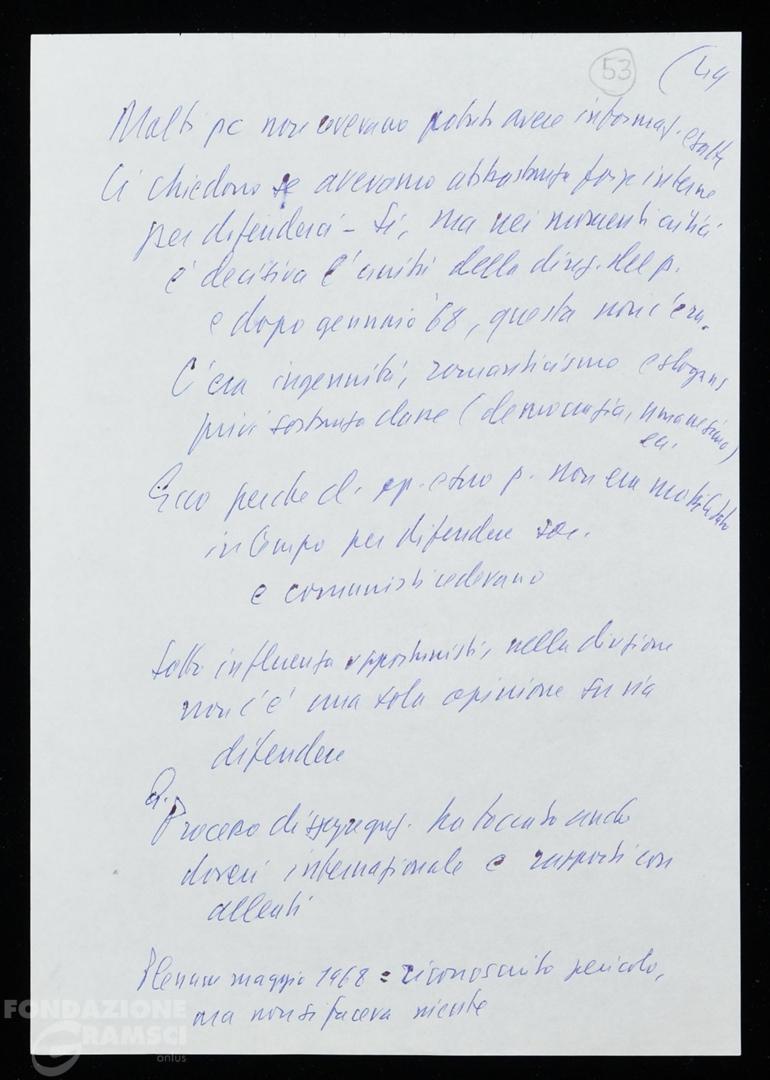 53
(44
Molti pc non avevano potuto avere informaz. esatte
Ci chiedono se avevamo abbastanza forze interne
per difenderci – Sì, ma nei momenti critici
è decisiva l'unità della direz. del p.
e dopo gennaio '68, questa non c'era.
C'era ingenuità, romanticismo e slogans
privi sostanza classe (democrazia, umanesimo)
ecc.
Ecco perché cl. op. e suo p. non era mobilitato
in tempo per difendere soc.
e comunisti cedevano
Sotto influenza opportunisti, nella direzione
non c'è una sola opinione su via
difendere
Processo disgregaz. ha toccato anche
doveri internazionale e rapporti con
alleati
Plenum maggio 1968 = riconosciuto pericolo,
ma non si faceva niente
FONDAZIONE
GRAMSCI
onlus